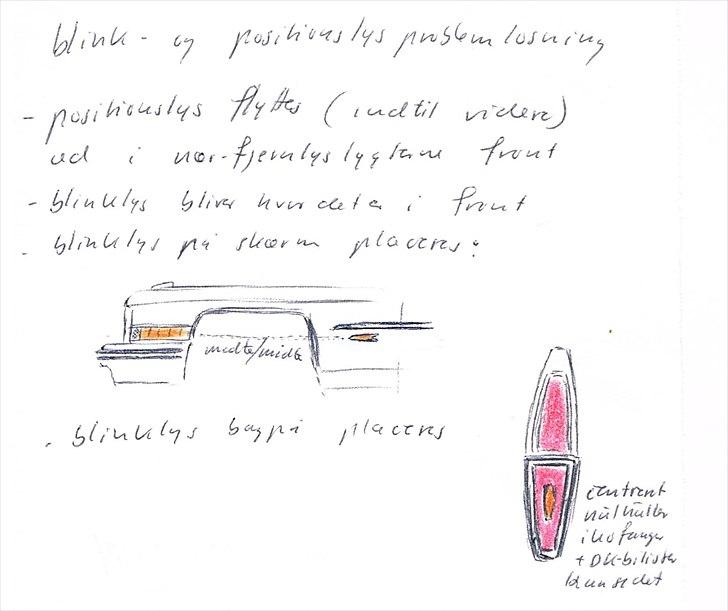 blink- og positionslys problemløsning
- positionslys flyttes (indtil videre)
ud i nær-fjernlyslygterne front
- blinklys bliver hvor det er i front
- blinklys på skærm placeres:
midte/midte
- blinklys bagpå placeres
centreret
i kofanger
+ DK-bilister
kan se det